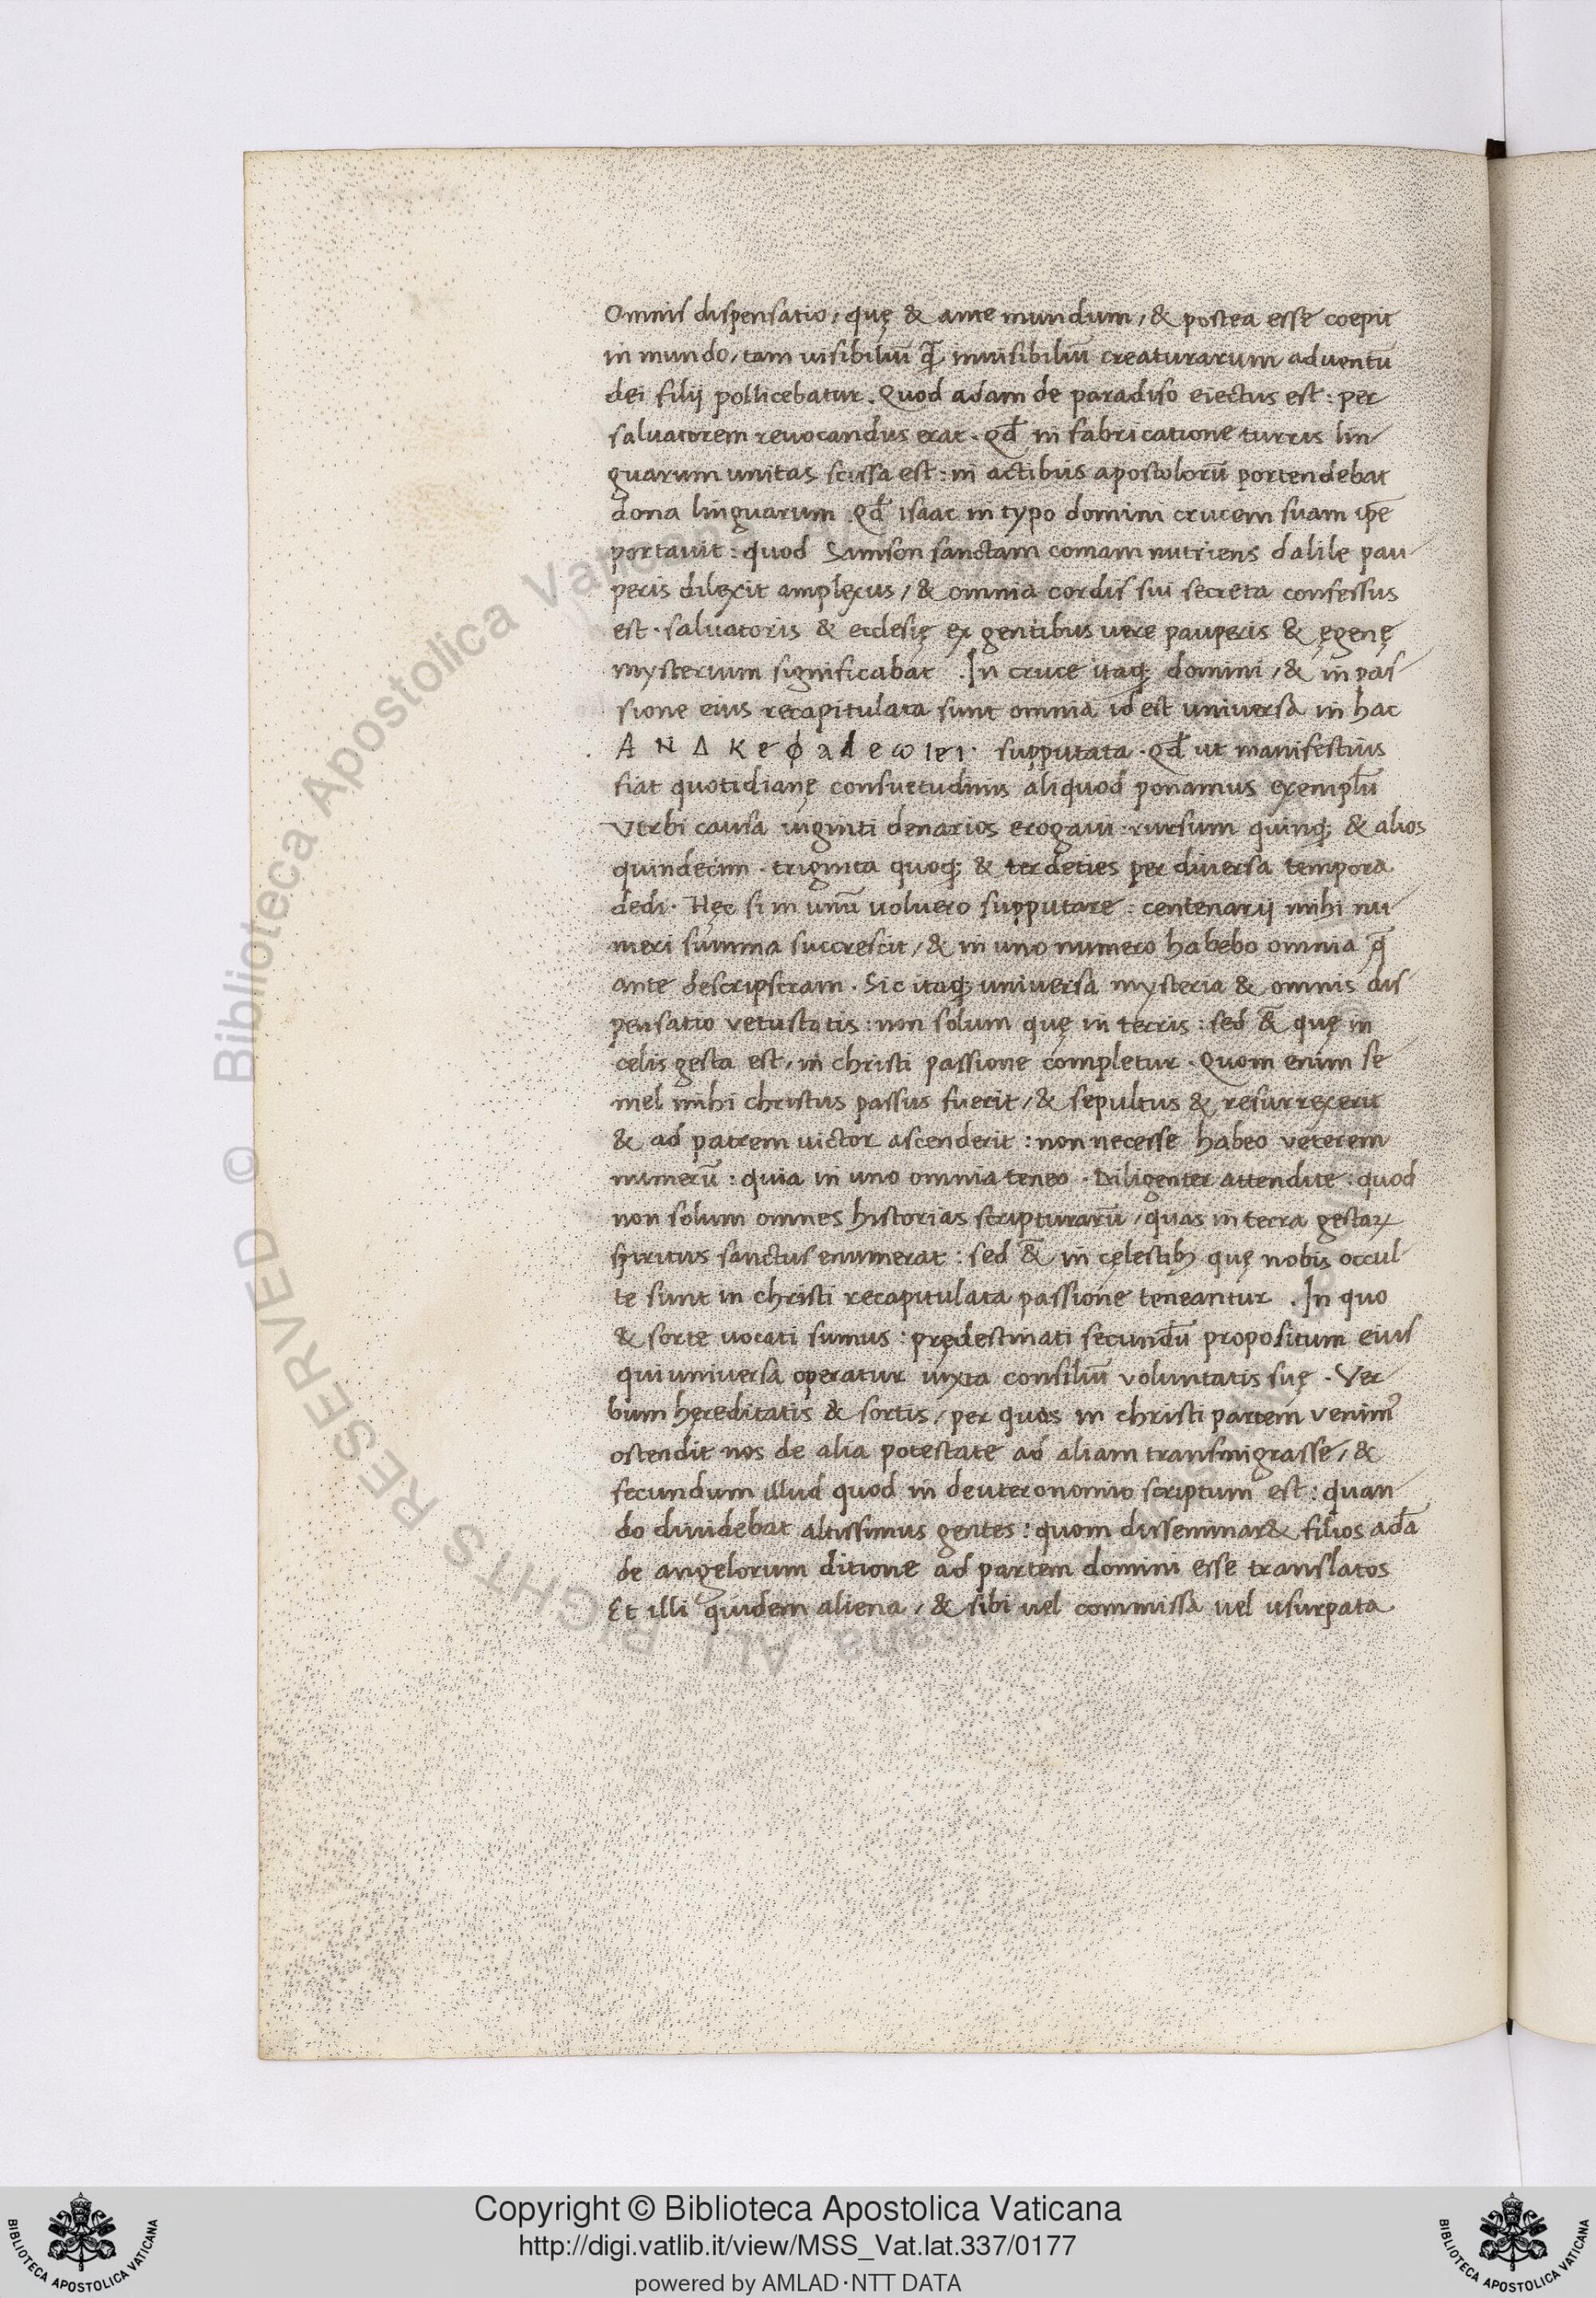 Omnis dispensatio, quę & ante mundum, & postea esse coepit
in mundo, tam uisibiliū q̄ inuisibiliū creaturarum aduentū
dei filij pollicebatur. Quod adam de paradiso eiectus est: per
saluatorem reuocandus erat. qd̄ in fabricatione turris lin
guarum unitas scissa est: in actibus apostolorū portendebat
dona linguarum. qd̄ isaac in typo domini crucem suam ip̄e
portauit: quod Samson sanctam comam nutriens dalile pau
peris dilexit amplexus, & omnia cordis sui secreta confessus
est. saluatoris & ecclesię ex gentibus vere pauperis & ęgenę
mysterium significabat. In cruce itaq; domini, & in pas
sione eius recapitulata sunt omnia id est universa in hac
Α Ν Δ Κ ε φ α λ ε ω ι ε ι. supputata. qd̄ ut manifestius
fiat quotidianę consuetudinis aliquod ponamus exemplū
Verbi causa uiginti denarios erogaui: rursum quinq; & alios
quindecim. triginta quoq; & ter deties per diuersa tempora
dedi. Hęc si in unū uoluero supputare: centenarij mihi nu
meri summa succrescit, & in uno numero habebo omnia q̄
ante descripseram. Sic itaq; universa mysteria & omnis dis
pensatio vetustatis: non solum quę in terris: sed &̄ quę in
celis gesta est, in christi passione completur. Quom enim se
mel mihi christus passus fuerit, & sepultus & resurrexerit
& ad patrem uictor ascenderit: non necesse habeo veterem
numerū: quia in uno omnia teneo. Diligenter attendite: quod
non solum omnes historias scripturarū, quas in terra gestaꝝ
spiritus sanctus enumerat: sed &̄ in cęlestib; quę nobis occul
te sunt in christi recapitulata passione teneantur. In quo
& sorte uocati sumus: prędestinati secundū propositum eius
qui universa operatur iuxta consiliū voluntatis suę. Ver
bum hęreditatis & sortis, per quas in christi partem venim᾿
ostendit nos de alia potestate ad aliam transmigrasse, &
secundum illud quod in deuteronomio scriptum est: quan
do diuidebat altissimus gentes: quom disseminar& filios adā
de angelorum ditione ad partem domini esse translatos
Et illi quidem aliena, & sibi uel commissa uel usurpata
© Biblioteca Apostolica Vaticana
ALL RIGHTS RESERVED
Copyright © Biblioteca Apostolica Vaticana
http://digi.vatlib.it/view/MSS_Vat.lat.337/0177
powered by AMLAD·NTT DATA
BIBLIOTECA APOSTOLICA VATICANA
BIBLIOTECA APOSTOLICA VATICANA